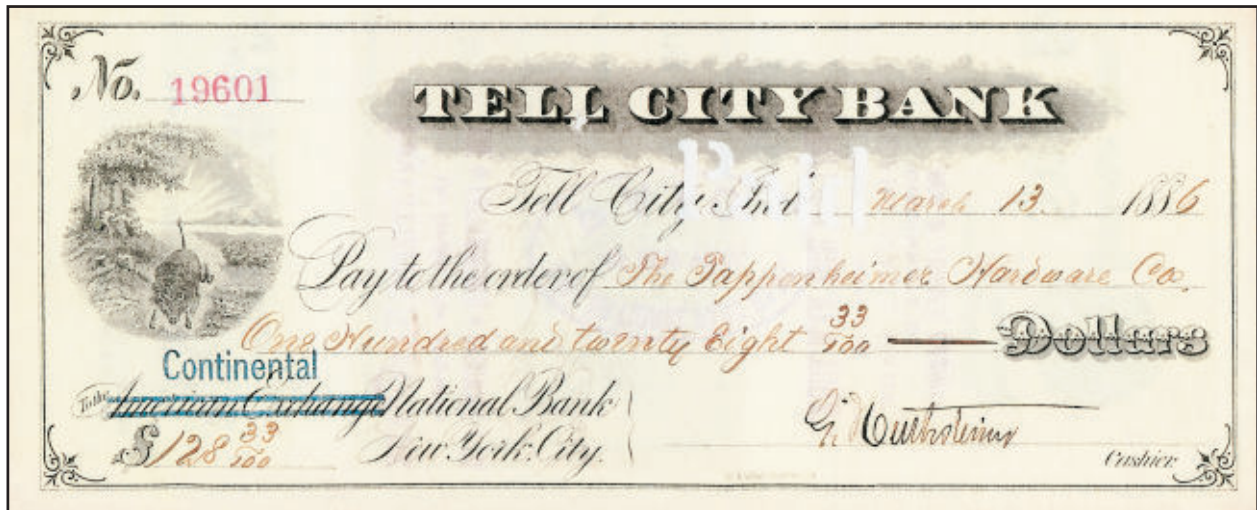 No. 19601
TELL CITY BANK
Paid
Tell City, Ind. March 13. 1886
Pay to the order of The Pappenheimer Hardware Co.
One Hundred and twenty Eight 33/100 Dollars
Continental
To the American Exchange National Bank
$128 33/100 New York City.
Cashier.